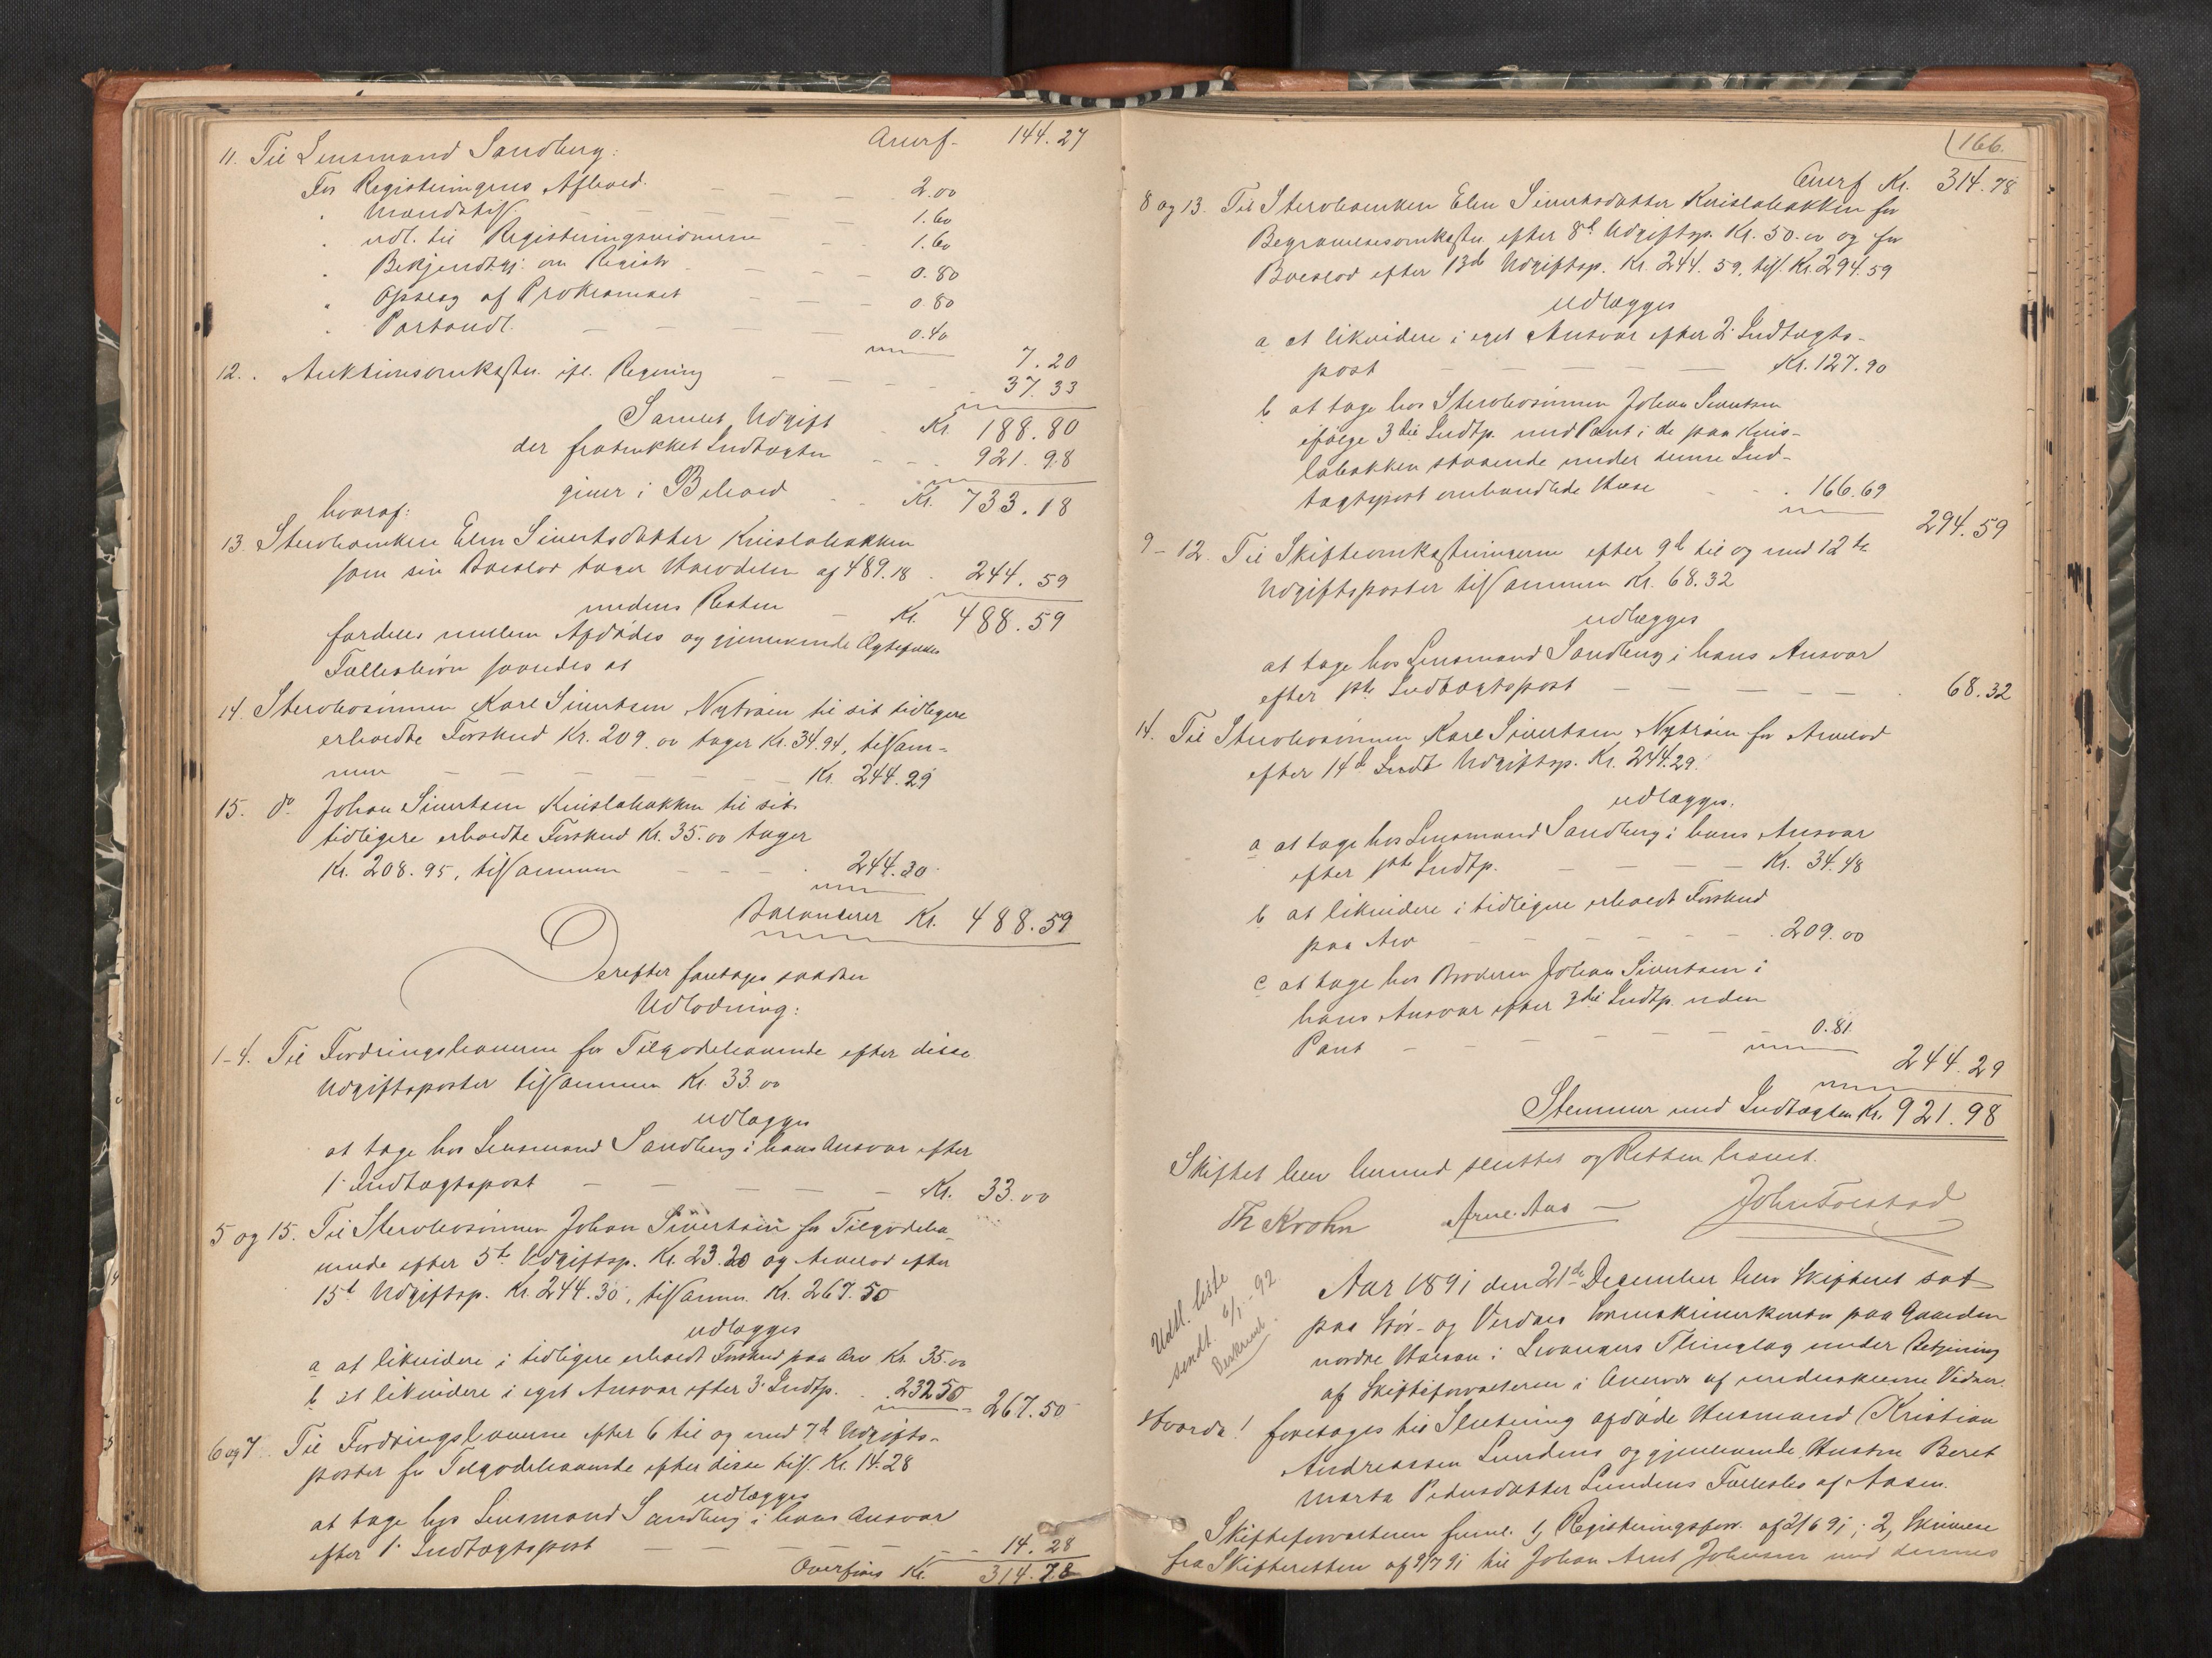 Overf. 144.27
11. Til Lensmand Sandberg:
For Registeringens Afhold. — — 2.00
" Mændstill. — — 1.60
" udl. til Registeringsvidnerne — 1.60
" Bekjendtgj. om Registr. — — 0.80
" Opslag af Proklamaet — — 0.80
" Portoudl. — — 0.40
7.20
12. Auktionsomkostn. ifl. Regning — — 37.33
Samlet Udgift Kr. 188.80
der fratrukket Indtægten — — 921.98
giver i Behold Kr. 733.18
hvoraf:
13. Stervboenken Elen Sivertsdatter Kvislabakken
som sin Boeslod tager Halvdelen af 489.18 . 244.59
medens Resten — Kr. 488.59
fordeles mellem Afdødes og gjenlevende Ægtefælles
Fællesbørn saaledes at
14. Stervbosønnen Karl Sivertsen Nytrøen til sit tidligere
erholdte Forskud Kr. 209.00 tager Kr. 34.94, tilsam-
men — — — Kr. 244.29
15. do. Johan Sivertsen Kvislabakken til sit
tidligere erholdte Forskud Kr. 35.00 tager
Kr. 208.95, tilsammen — — 244.30
Balancerer Kr. 488.59
Derefter foretages saadan
Udlodning:
1-4. Til Fordringshaverne for Tilgodehavende efter disse
Udgiftsposter tilsammen Kr. 33.00
udlægges
at tage hos Lensmand Sandberg i hans Ansvar efter
1. Indtægtspost — — — Kr. 33.00
5 og 15. Til Stervbosønnen Johan Sivertsen for Tilgodeha-
vende efter 5te Udgiftsp. Kr. 23.20 og Arvelod efter
15de Udgiftsp. Kr. 244.30, tilsamm. Kr. 267.50
udlægges
a at likvidere i tidligere erholdt Forskud paa Arv Kr. 35.00
b at likvidere i eget Ansvar efter 3. Indtp. . . 232.50 267.50
6 og 7. Til Fordringshaverne efter 6 til og med 7de Udgifts-
poster for Tilgodehavende efter disse tils. Kr. 14.28
udlægges
at tage hos Lensmand Sandberg i hans Ansvar
efter 1. Indtægtspost — — — 14.28
Overføres Kr. 314.78
166.
Overf Kr. 314.78
8 og 13. Til Stervboenken Elen Sivertsdatter Kvislabakken for
Begravelsesomkostn. efter 8de Udgiftsp. Kr. 50.00 og for
Boeslod efter 13de Udgiftsp. Kr. 244.59, tils. Kr. 294.59
udlægges
a at likvidere i eget Ansvar efter 2. Indtægts-
post — — — Kr. 127.90
b at tage hos Stervbosønnen Johan Sivertsen
ifølge 3die Indtp. med Pant i de paa Kvis-
labakken staaende under denne Ind-
tægtspost omhandlede Huse — . 166.69
294.59
9-12. Til Skifteomkostningerne efter 9de til og med 12te
Udgiftsposter tilsammen Kr. 68.32
udlægges
at tage hos Lensmand Sandberg i hans Ansvar
efter 1ste Indtægtspost — — — 68.32
14. Til Stervbosønnen Karl Sivertsen Nytrøen for Arvelod
efter 14de Indt Udgiftsp. Kr. 244.29.
udlægges.
a at tage hos Lensmand Sandberg i hans Ansvar
efter 1ste Indtp. — — Kr. 34.48
b at likvidere i tidligere erholdt Forskud
paa Arv — — — . 209.00
c at tage hos Broderen Johan Sivertsen i
hans Ansvar efter 3die Indtp. uden
Pant — — — 0.81
244.29
Stemmer med Indtægten Kr. 921.98
Skiftet blev hermed sluttet og Retten hævet.
Th Krohn Arne Aas — John Tolstad
Udl. liste
sendt. 6/1-92
Aar 1891 den 21de December blev Skifteret sat
paa Stjør- og Verdals Sorenskriverkontor paa Gaarden
nordre Halsan i Levangers Thinglag under Betjening
af Skifteforvalteren i Overvær af underskrevne Vidner.
Hvorda! foretages til Slutning afdøde Husmand Kristian
Andreassen Lundens og gjenlevende Hustru Beret
Marta Pedersdatter Lundens Fællesbo af Aasen.
Skifteforvalteren freml. 1, Registeringsforr. af 2/6 91; 2, Skrivelse
fra Skifteretten af 9/7 91 til Johan Arnt Johnsen med dennes